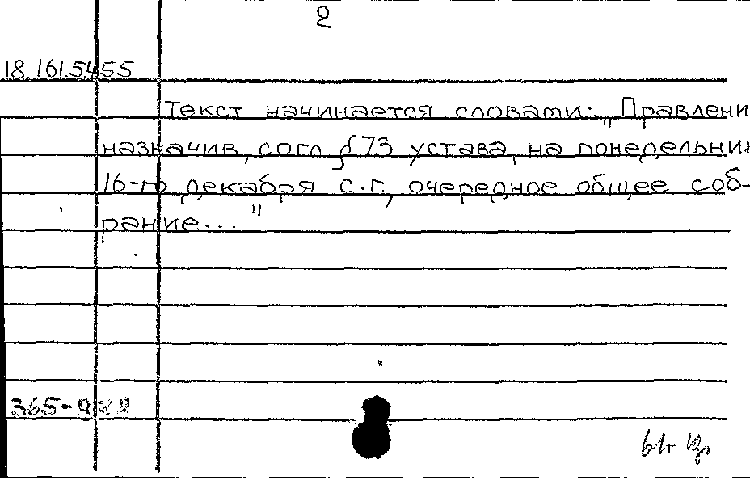 2
18.161.5455
Текст начинается словами: „Правлени
назначив, согл § 73 устава, на понедельник
16-го декабря с.г., очередное общее соб-
рание..."
365-